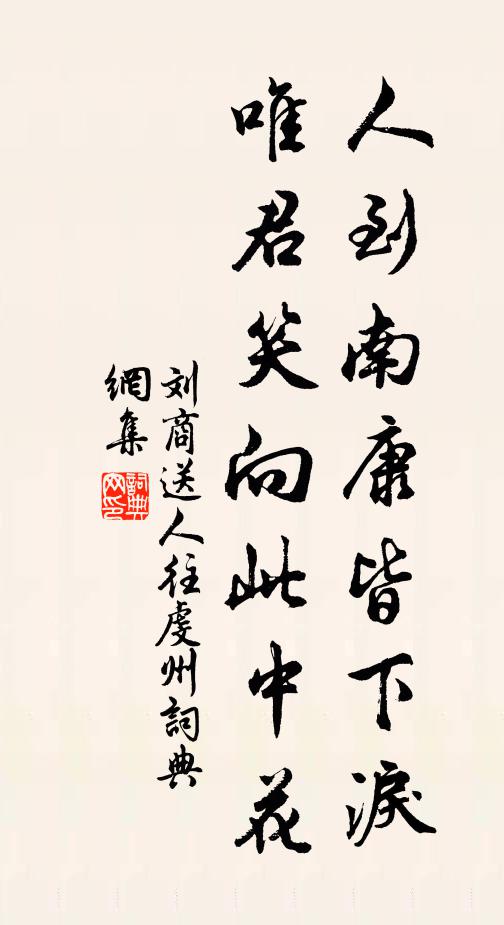 人到南康皆下淚
唯君笑向此中花
刘商送人往虔州詞典
網集
詞典
网印